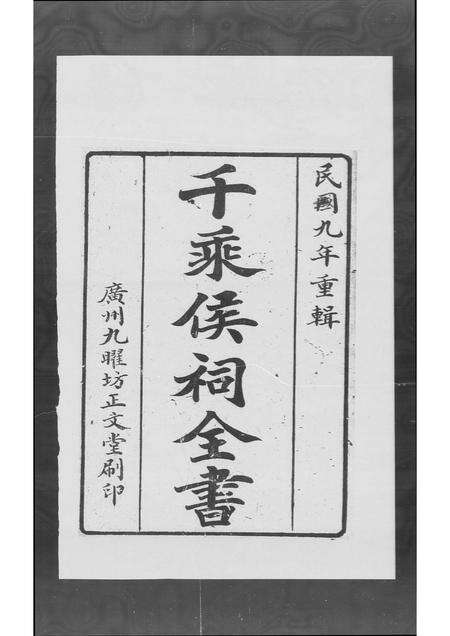 民國九年重輯
千乘侯祠全書
廣州九曜坊正文堂刷印